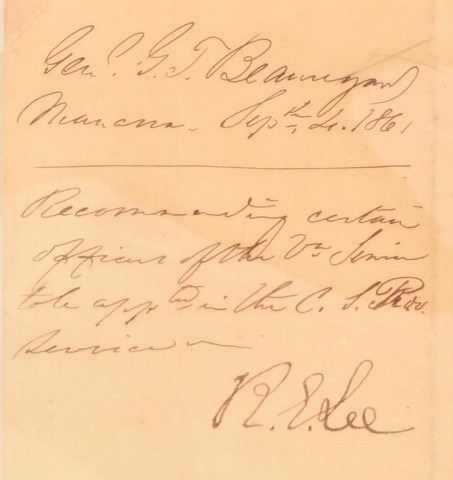 Genl. G. T. Beauregard
Manassas. Sept. 4. 1861
Recommending certain
officers of the Va Service
to be appd in the C. S. Prov.
service
R. E. Lee